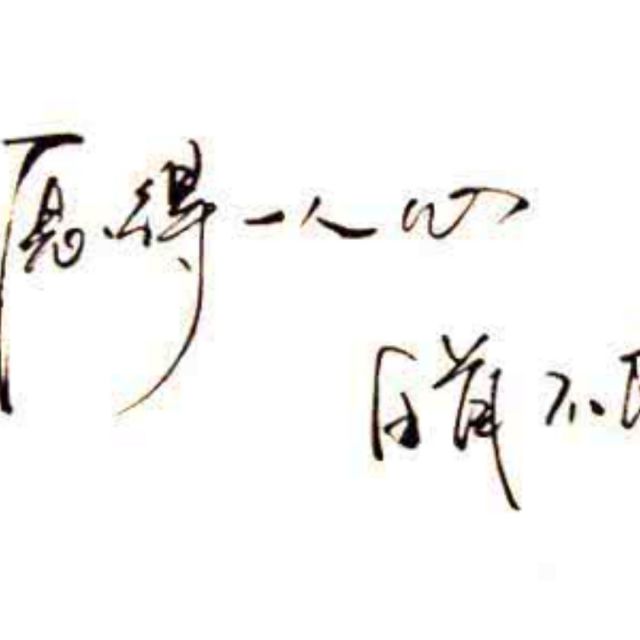 愿得一人心
白首不